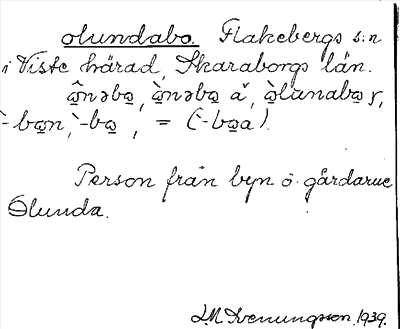 olundabo. Flakebergs s:n
i Viste härad, Skaraborgs län.
ꞷ̂nəbꞷ, ꞷ̀nəbꞷ a', ꞷ̀lunabꞷ r,
`-bꞷn, `-bꞷ, = (`-bꞷa).
Person från byn o. gårdarne
Olunda.
L.M. Svenungsson. 1939.